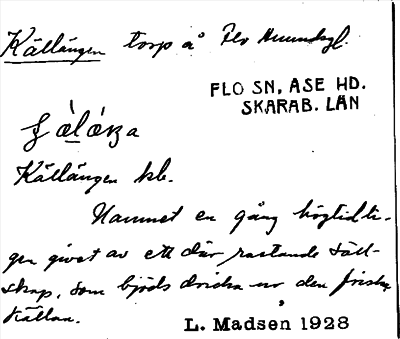 Källängen torp å Flo
FLO SN, ASE HD.
SKARAB. LÄN
Källängen kb.
Namnet en gång högtidli-
gen givet av ett där rastande säll-
skap, som bjöds dricka ur den friska
källan.
L. Madsen 1928